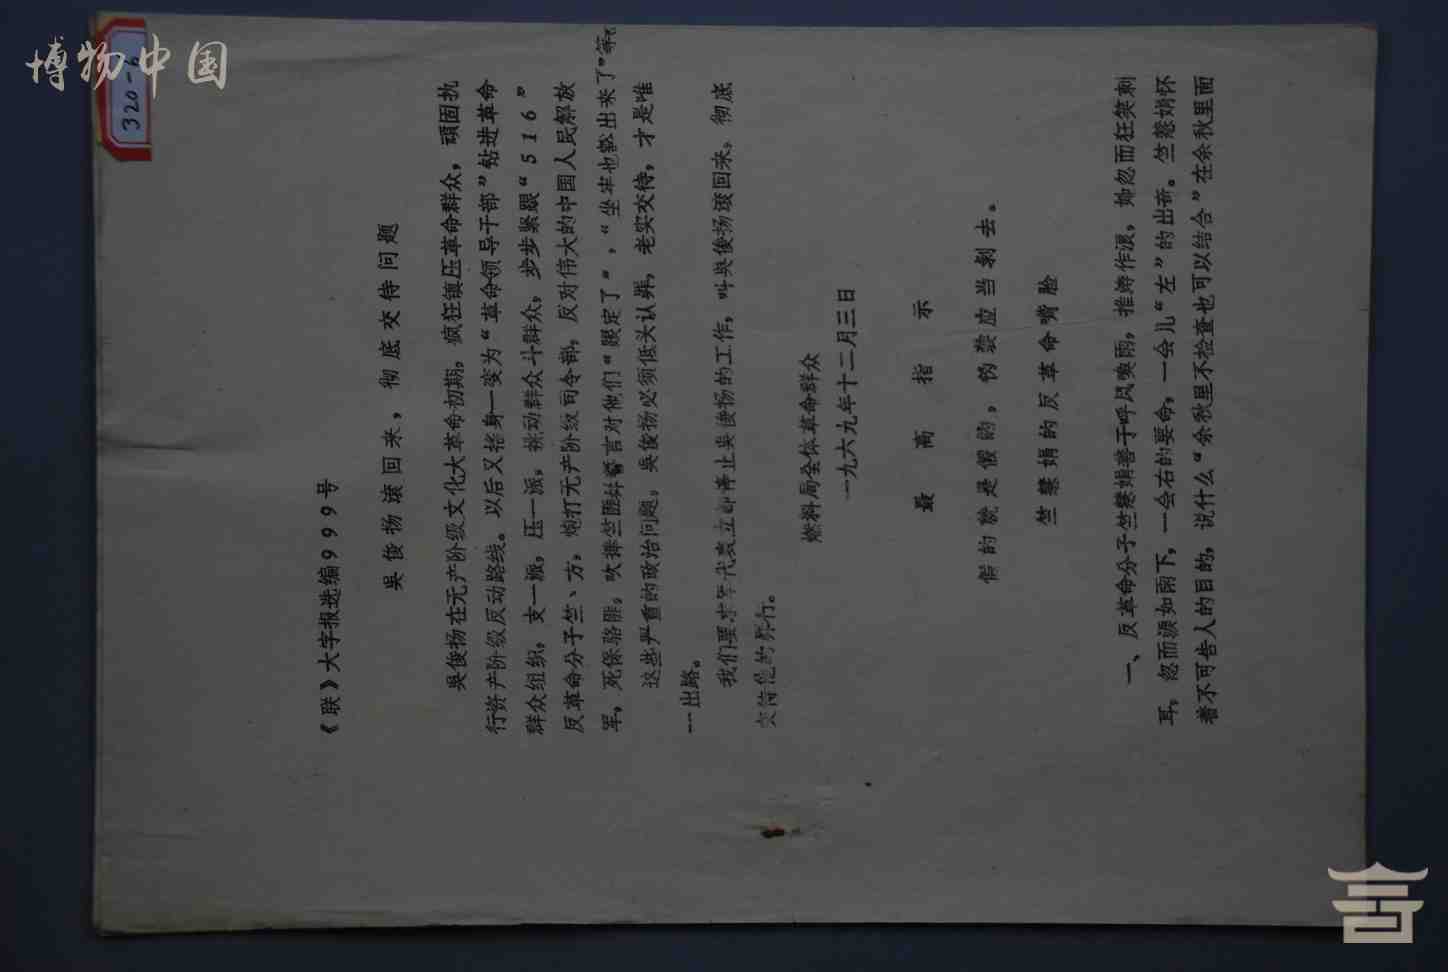 博物中国
320-6
《联》大字报选编999号
吴俊扬滚回来，彻底交待问题
吴俊扬在无产阶级文化大革命初期，疯狂镇压革命群众，顽固执
行资产阶级反动路线。以后又摇身一变为“革命领导干部”钻进革命
群众组织，支一派，压一派，挑动群众斗群众，步步紧跟“516”
反革命分子竺、方，炮打无产阶级司令部，反对伟大的中国人民解放
军，死保骆匪，吹捧竺匪并誓言对他们“跟定了”，“坐牢也豁出来了”等。
这些严重的政治问题，吴俊扬必须低头认罪，老实交待，才是唯
一出路。
我们要求军代表立即停止吴俊扬的工作，叫吴俊扬滚回来，彻底
交待他的罪行。
燃料局全体革命群众
一九六九年十二月三日
最高指示
假的就是假的，伪装应当剥去。
竺慧娟的反革命嘴脸
一、反革命分子竺慧娟善于呼风唤雨，推涛作浪，她忽而狂笑刺
耳，忽而泪如雨下，一会右的要命，一会儿“左”的出奇。竺慧娟怀
着不可告人的目的，说什么“余秋里不检查也可以结合”在余秋里面